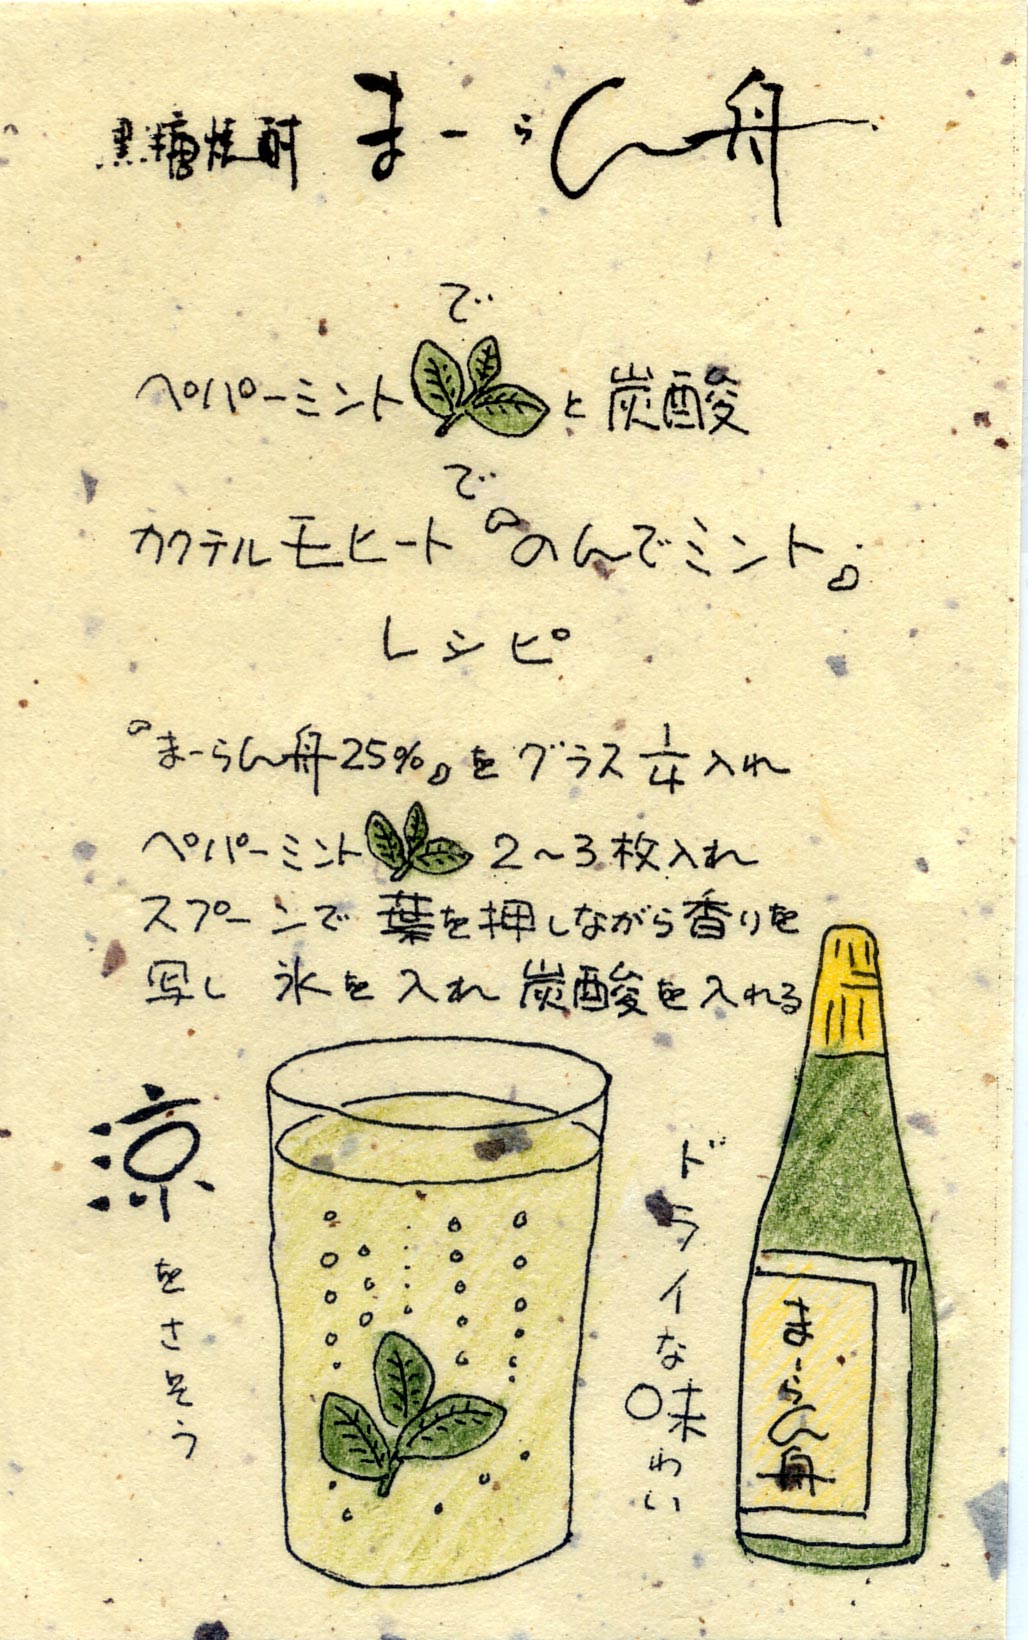 黒糖焼酎 まーらん舟
で
ペパーミント と 炭酸
で
カクテル モヒート『のんでミント』
レシピ
『まーらん舟25%』を グラス 1/4 入れ
ペパーミント 2~3枚入れ
スプーンで 葉を押しながら香りを
写し 氷を入れ 炭酸を入れる
涼をさそう
ドライな味わい
まーらん舟